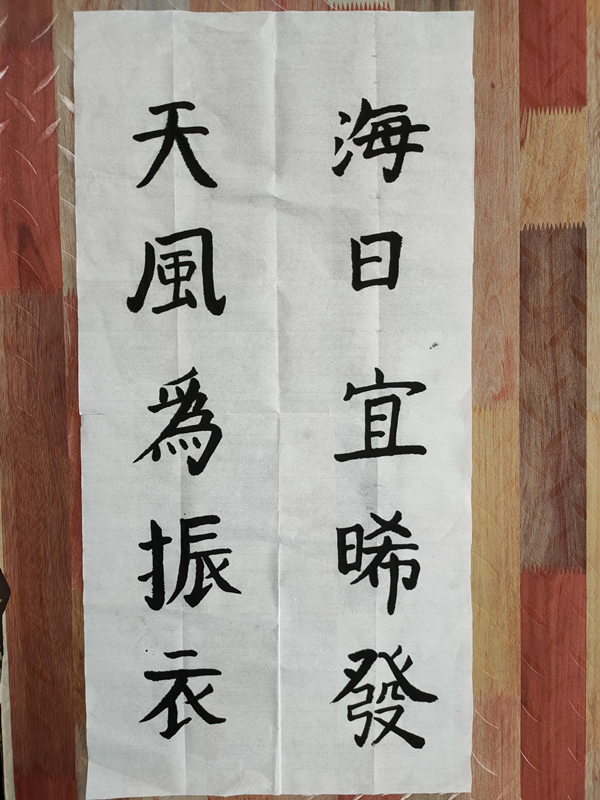 海日宜晞發
天風為振衣